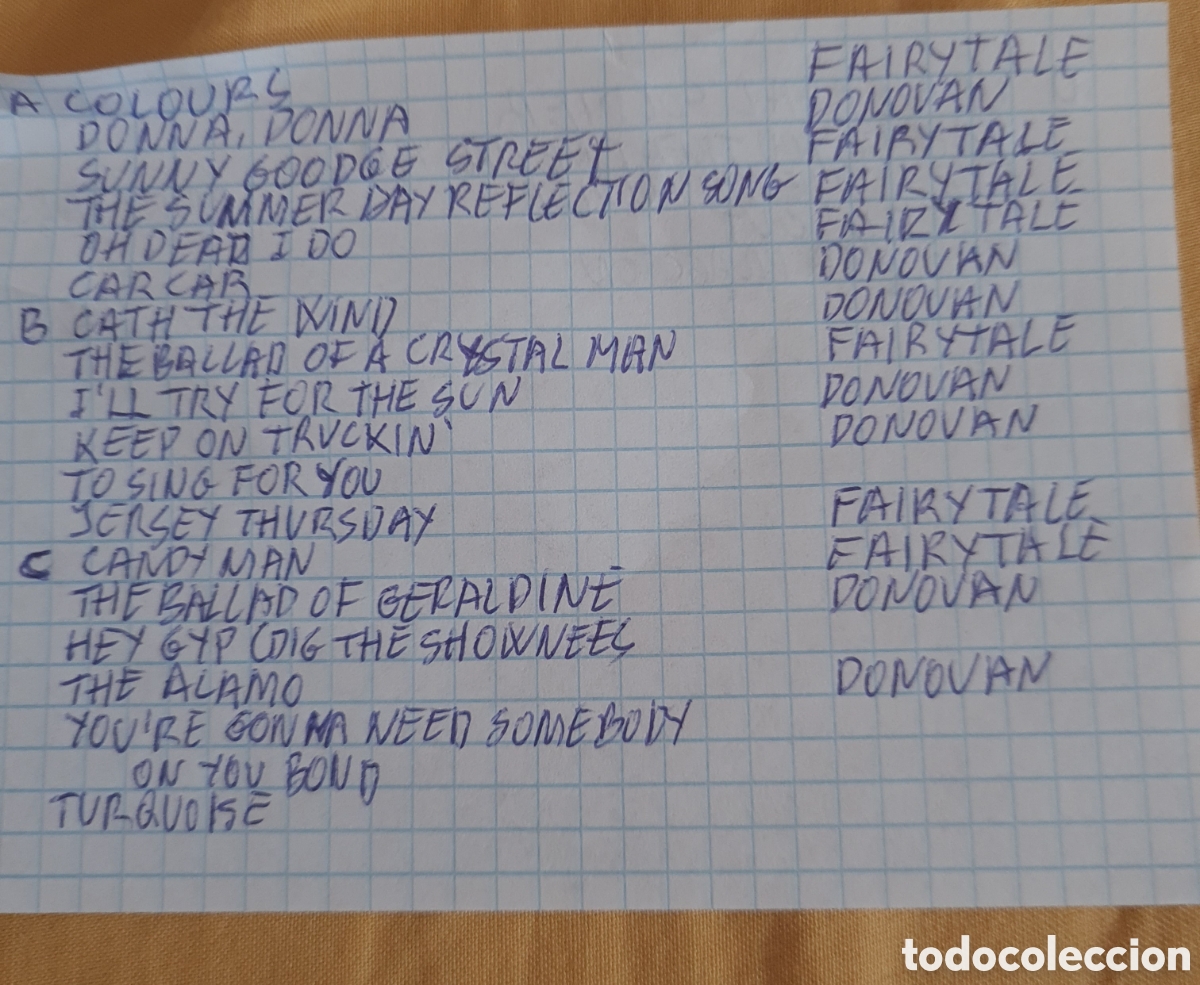 A COLOURS FAIRYTALE
DONNA, DONNA DONOVAN
SUNNY GOODGE STREET FAIRYTALE
THE SUMMER DAY REFLECTION SONG FAIRYTALE
OH DEAR I DO FAIRYTALE
CAR CAR DONOVAN
B CATH THE WIND DONOVAN
THE BALLAD OF A CRYSTAL MAN FAIRYTALE
I'LL TRY FOR THE SUN DONOVAN
KEEP ON TRUCKIN' DONOVAN
TO SING FOR YOU
JERSEY THURSDAY FAIRYTALE
C CANDY MAN FAIRYTALE
THE BALLAD OF GERALDINE DONOVAN
HEY GYP (DIG THE SHOWNEES
THE ALAMO DONOVAN
YOU'RE GONNA NEED SOMEBODY
ON YOU BOND
TURQUOISE
todocoleccion